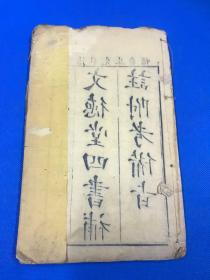 文德堂四書補
註附考備旨